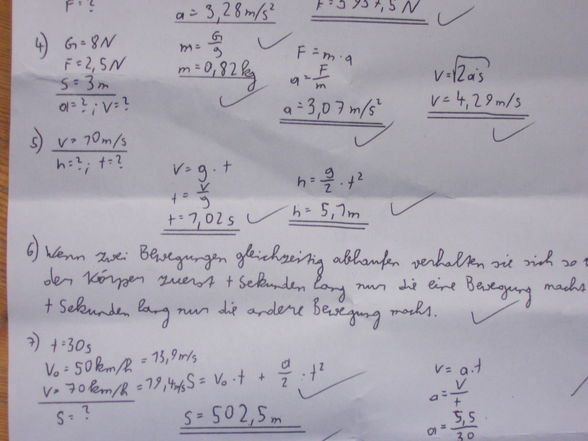 F = ?
a = 3,28 m/s²
4) G = 8N
F = 2,5N
s = 3m
a = ?; v = ?
m = G/g
m = 0,82 kg
F = m · a
a = F/m
a = 3,07 m/s²
v = √2as
v = 4,29 m/s
5) v = 10 m/s
h = ?; t = ?
v = g · t
t = v/g
t = 1,02 s
h = g/2 · t²
h = 5,1 m
6) Wenn zwei Bewegungen gleichzeitig ablaufen verhalten sie sich so
Körper zuerst t Sekunden lang nur die eine Bewegung macht
t Sekunden lang nur die andere Bewegung macht.
7) t = 30s
v₀ = 50 km/h = 13,9 m/s
v = 70 km/h = 19,4 m/s
s = ?
s = v₀ · t + a/2 · t²
s = 502,5 m
v = a · t
a = v/t
a = 5,5/30